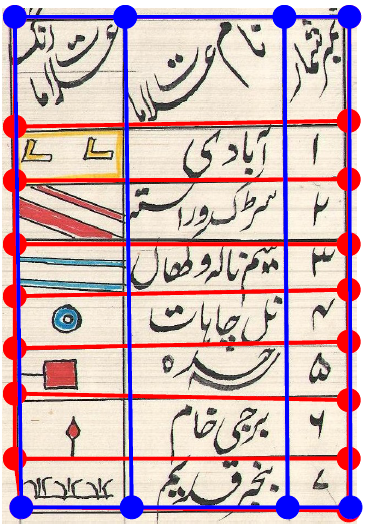 نمبر شمار نام علامات علامات رنگ
۱ آبادی
۲ سڑک و راستہ
۳ سیم نالہ و کھال
۴ نل چاہات
۵
۶ برجی خام
۷ بنجر قدیم